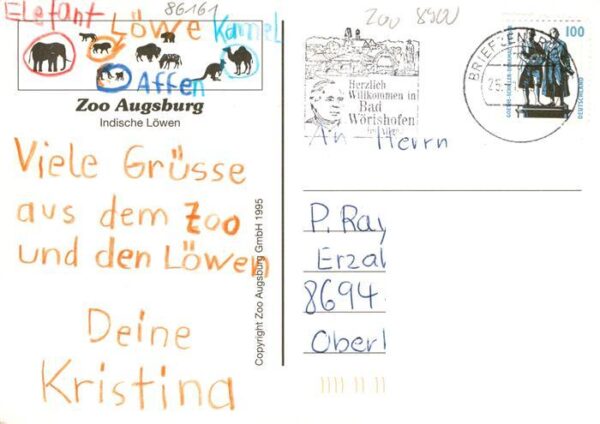 86161
Zoo 8900
Elefant Löwe Kamel
Affen
Zoo Augsburg
Indische Löwen
Viele Grüsse
aus dem Zoo
und den Löwen
Deine
Kristina
Copyright Zoo Augsburg GmbH 1995
Herzlich
Willkommen in
Bad
Wörishofen
BRIEFZEN
25.
100
DEUTSCHLAND
An Herrn
P. Ray
Erzal
8694
Oberl